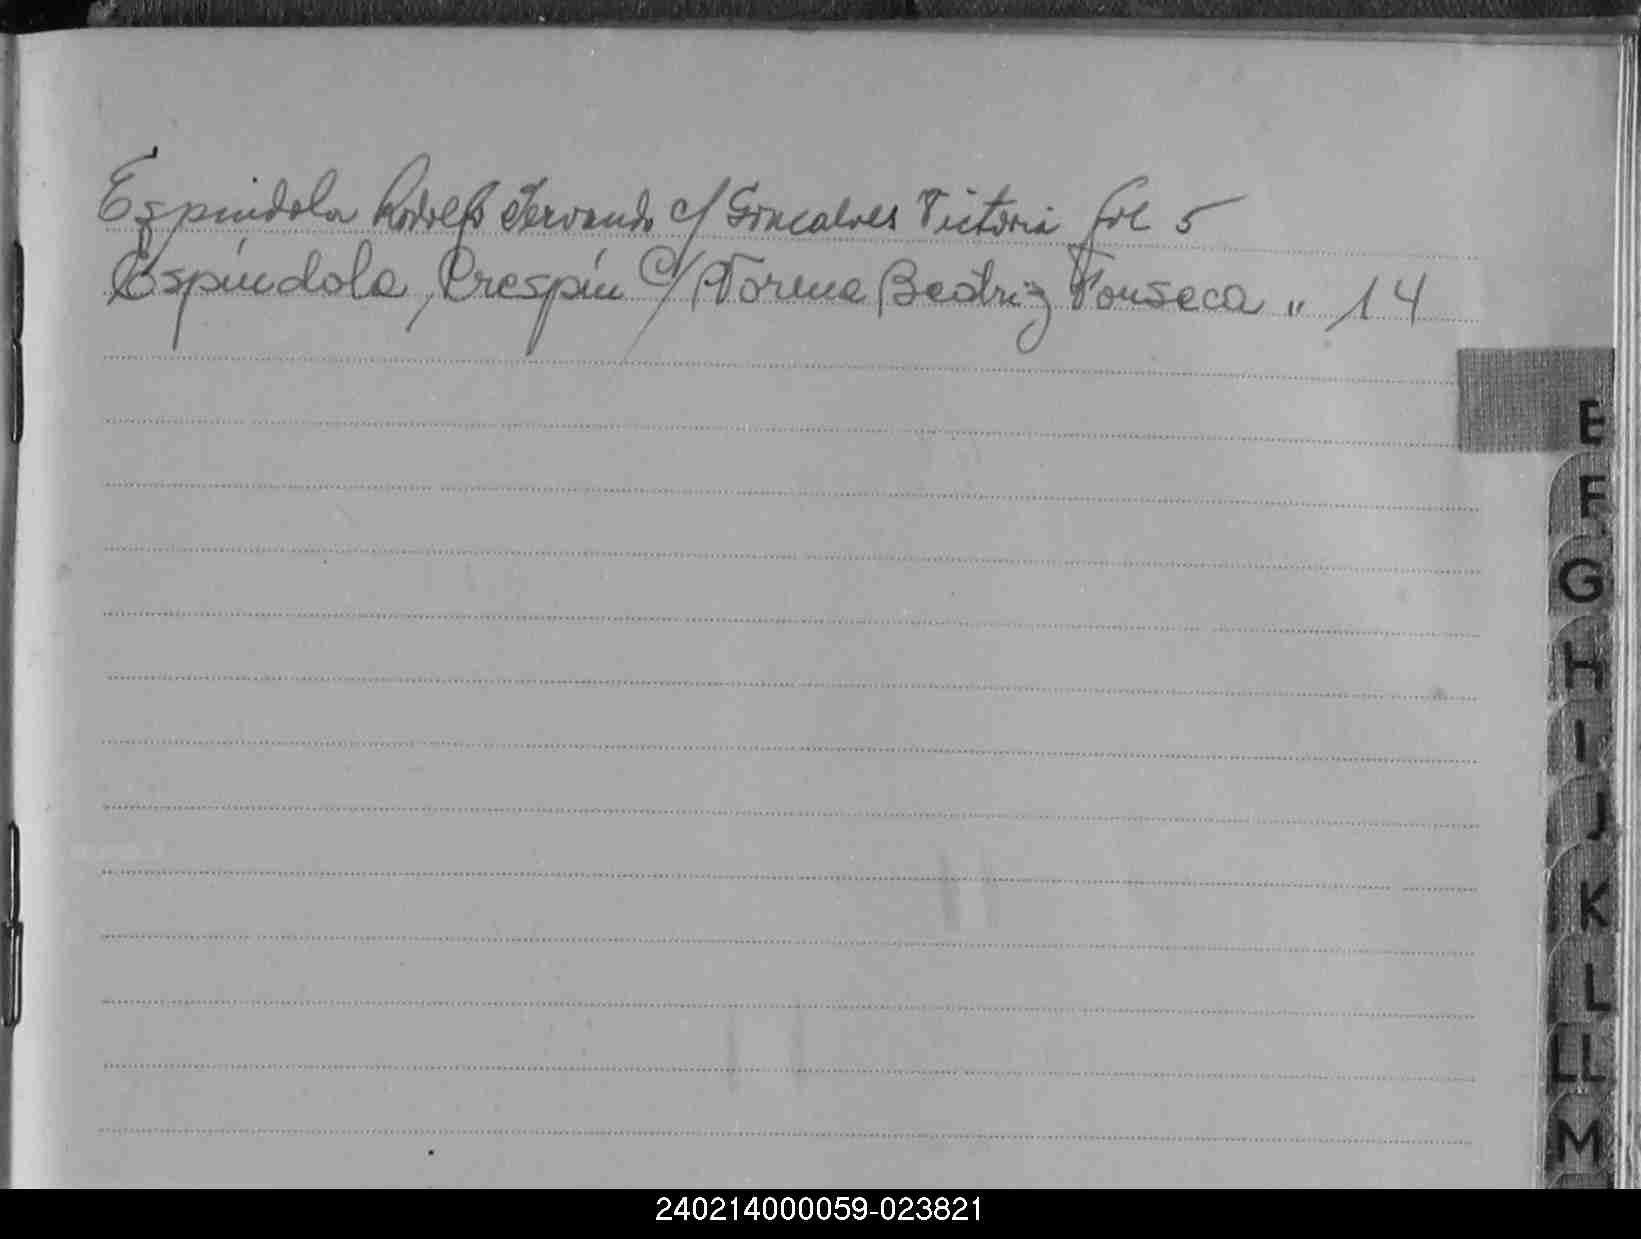 Espindola Rodolfo Servando c/ Goncalves Victoria fol 5
Espíndola, Crespín c/ Norma Beatriz Fonseca " 14
E
F
G
H
I
J
K
L
LL
M
240214000059-023821